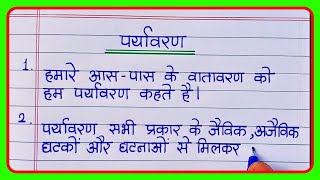 पर्यावरण
1. हमारे आस-पास के वातावरण को
हम पर्यावरण कहते है।
2. पर्यावरण सभी प्रकार के जैविक, अजैविक
घटकों और घटनाओं से मिलकर